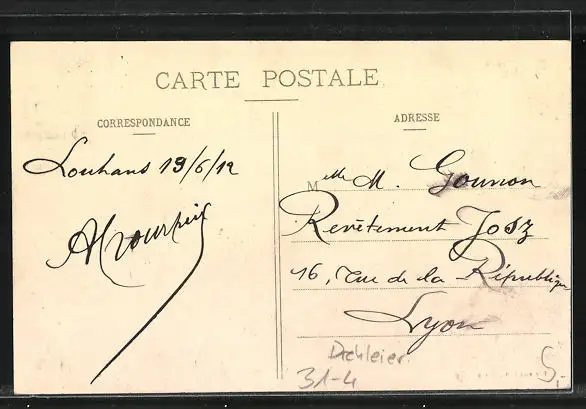 CARTE POSTALE
CORRESPONDANCE
ADRESSE
Louhans 19/6/12
Melle M. Gounon
Revêtement Josz
16, Rue de la République
Lyon
31-4
5,-